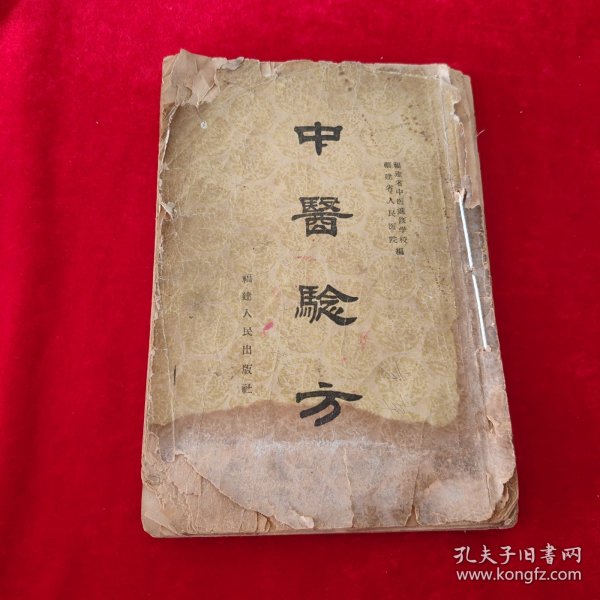 福建省中医進修学校
福建省人民医院
編
中醫驗方
福建人民出版社
孔夫子旧书网
www.kongfz.com